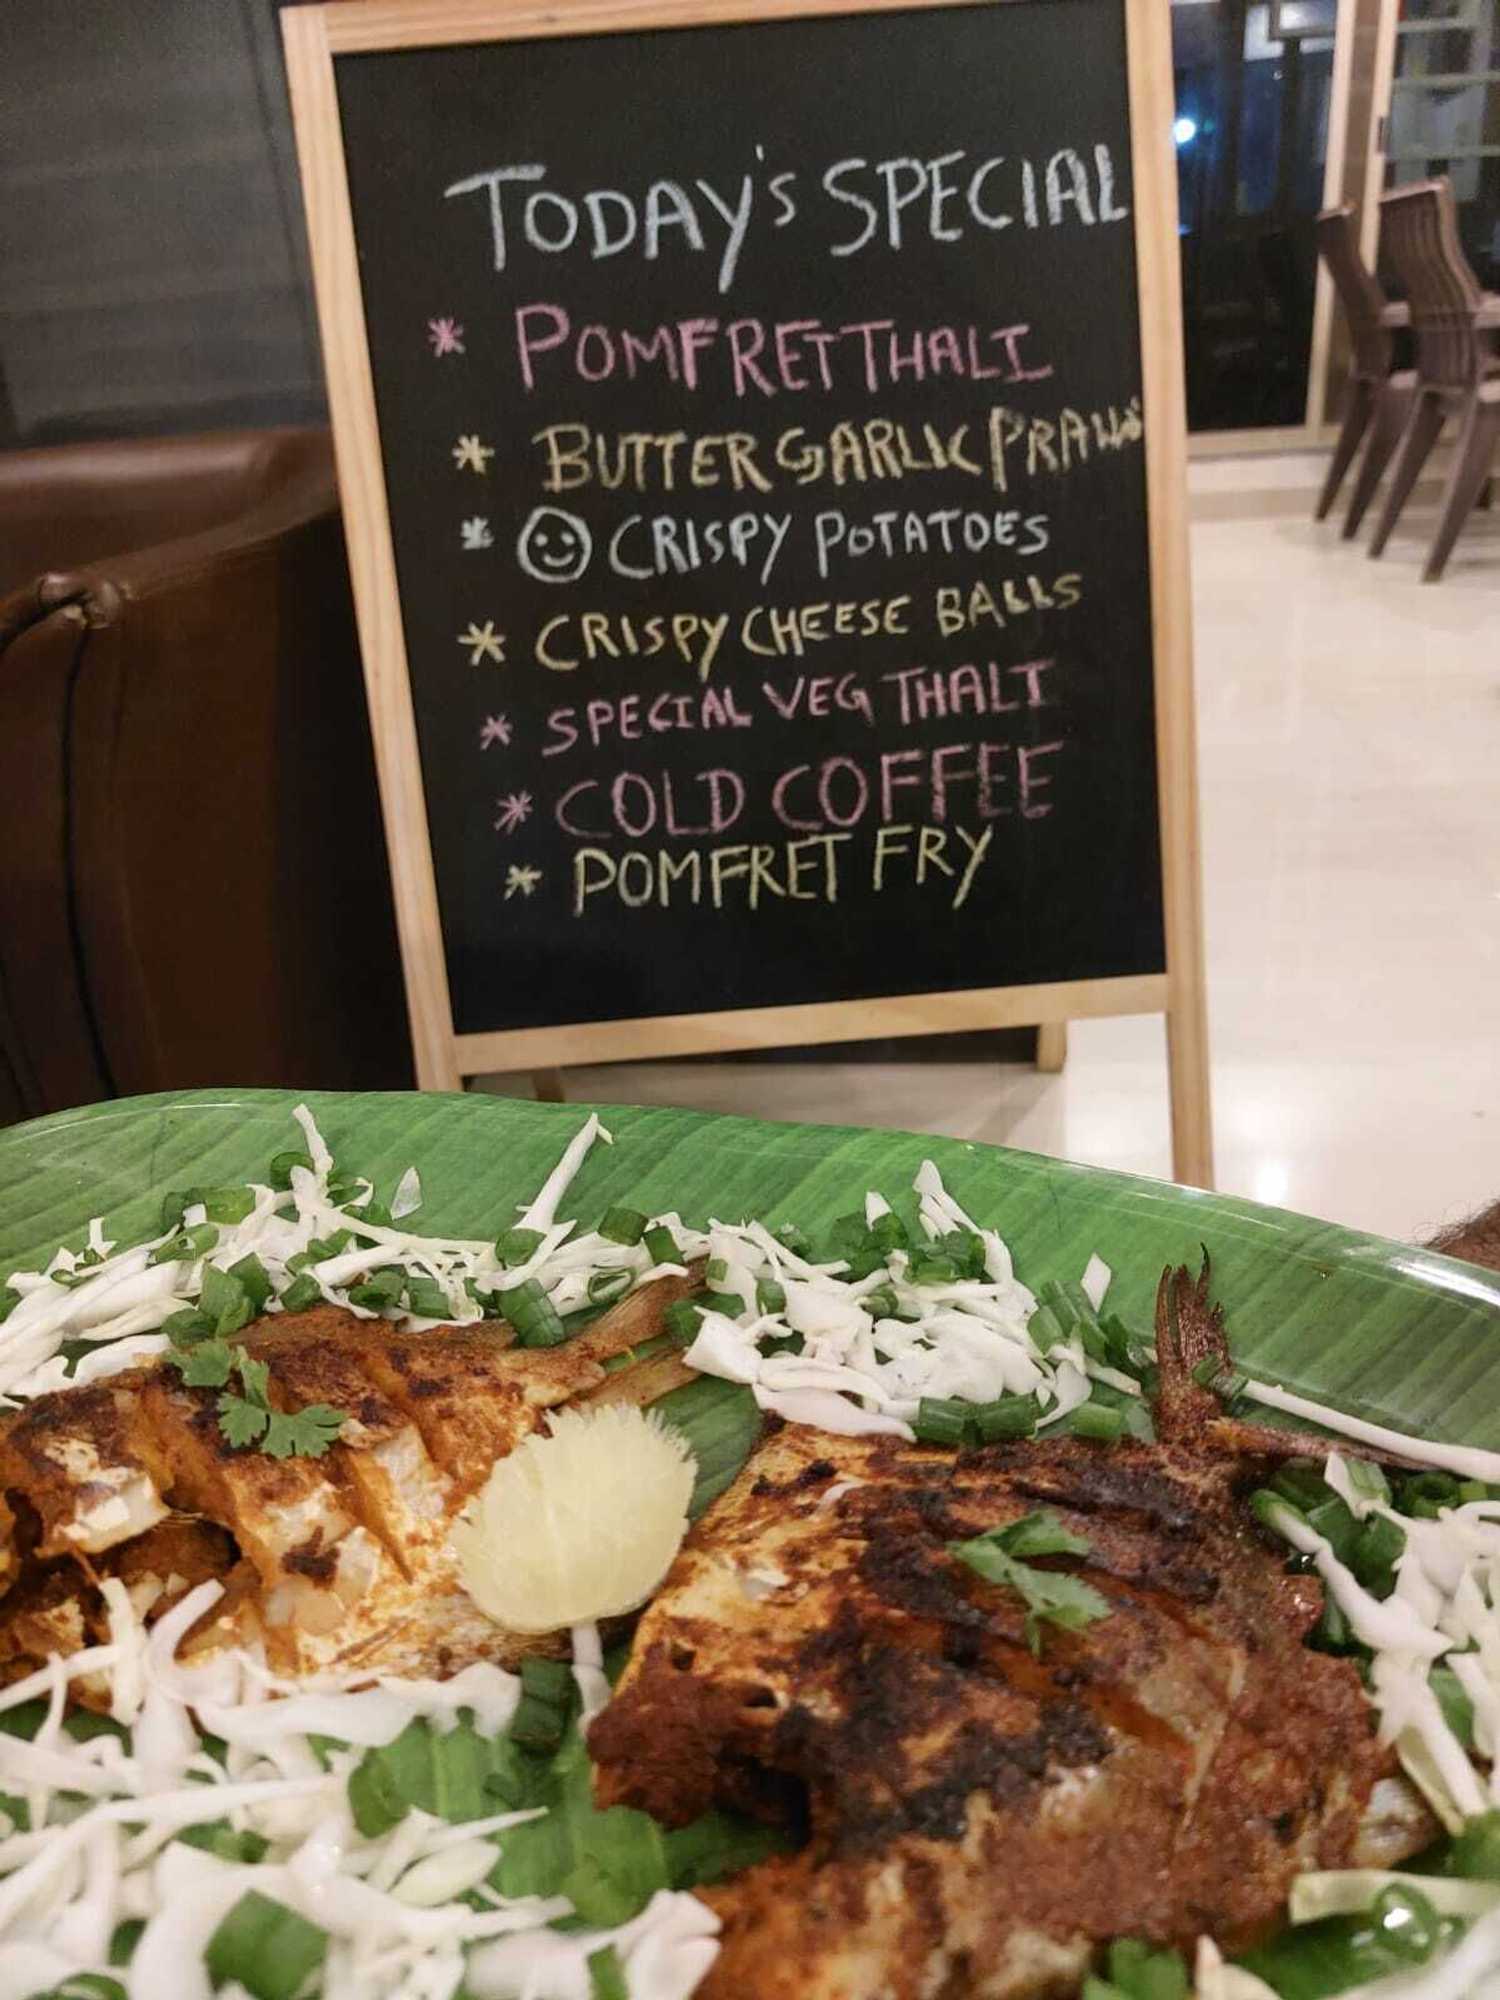 TODAY'S SPECIAL
* POMFRET THALI
* BUTTER GARLIC PRAWNS
* CRISPY POTATOES
* CRISPY CHEESE BALLS
* SPECIAL VEG THALI
* COLD COFFEE
* POMFRET FRY